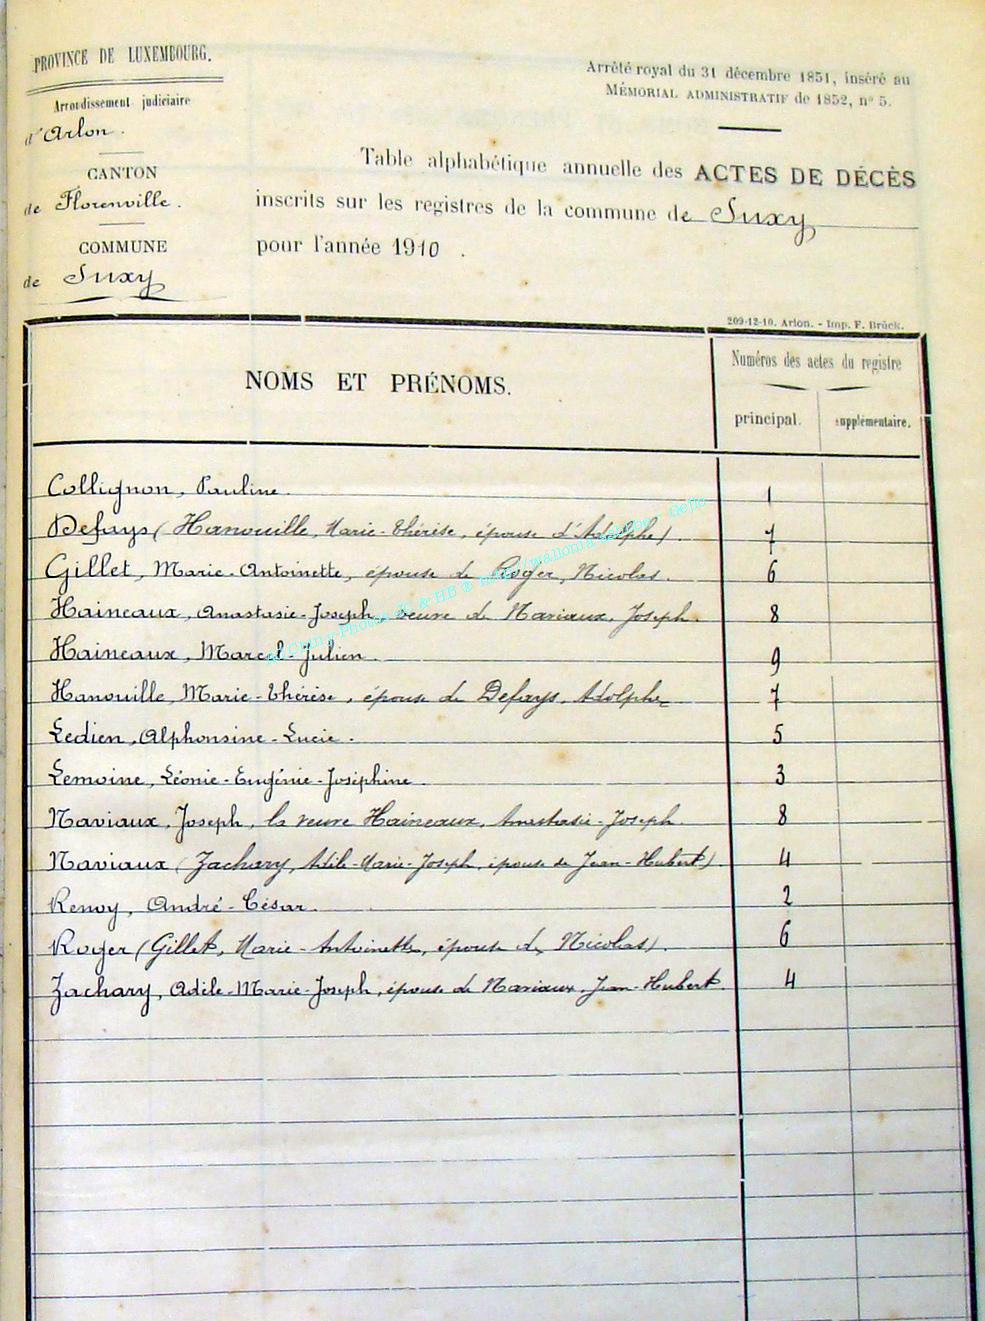 PROVINCE DE LUXEMBOURG.
Arrondissement judiciaire
d'Arlon.
CANTON
de Florenville.
COMMUNE
de Suxy
Arrêté royal du 31 décembre 1851, inséré au
MÉMORIAL ADMINISTRATIF de 1852, n° 5.
Table alphabétique annuelle des ACTES DE DÉCÈS
inscrits sur les registres de la commune de Suxy
pour l'année 1910.
209-12-10. Arlon. - Imp. F. Brück.
NOMS ET PRÉNOMS.
Numéros des actes du registre
principal. supplémentaire.
Collignon, Pauline. 1
Defays (Hanouille, Marie-Thérèse, épouse d'Adolphe). 7
Gillet, Marie-Antoinette, épouse de Roger, Nicolas. 6
Haineaux, Anastasie-Joseph, veuve de Naviaux, Joseph. 8
Haineaux, Marcel-Julien. 9
Hanouille, Marie-Thérèse, épouse de Defays, Adolphe 7
Ledien, Alphonsine-Lucie. 5
Lemoine, Léonie-Eugénie-Joséphine. 3
Naviaux, Joseph, la veuve Haineaux, Anastasie-Joseph 8
Naviaux (Zachary, Adèle-Marie-Joseph, épouse de Jean-Hubert). 4
Renoy, André-César. 2
Roger (Gillet, Marie-Antoinette, épouse de Nicolas). 6
Zachary, Adèle-Marie-Joseph, épouse de Naviaux, Jean-Hubert. 4